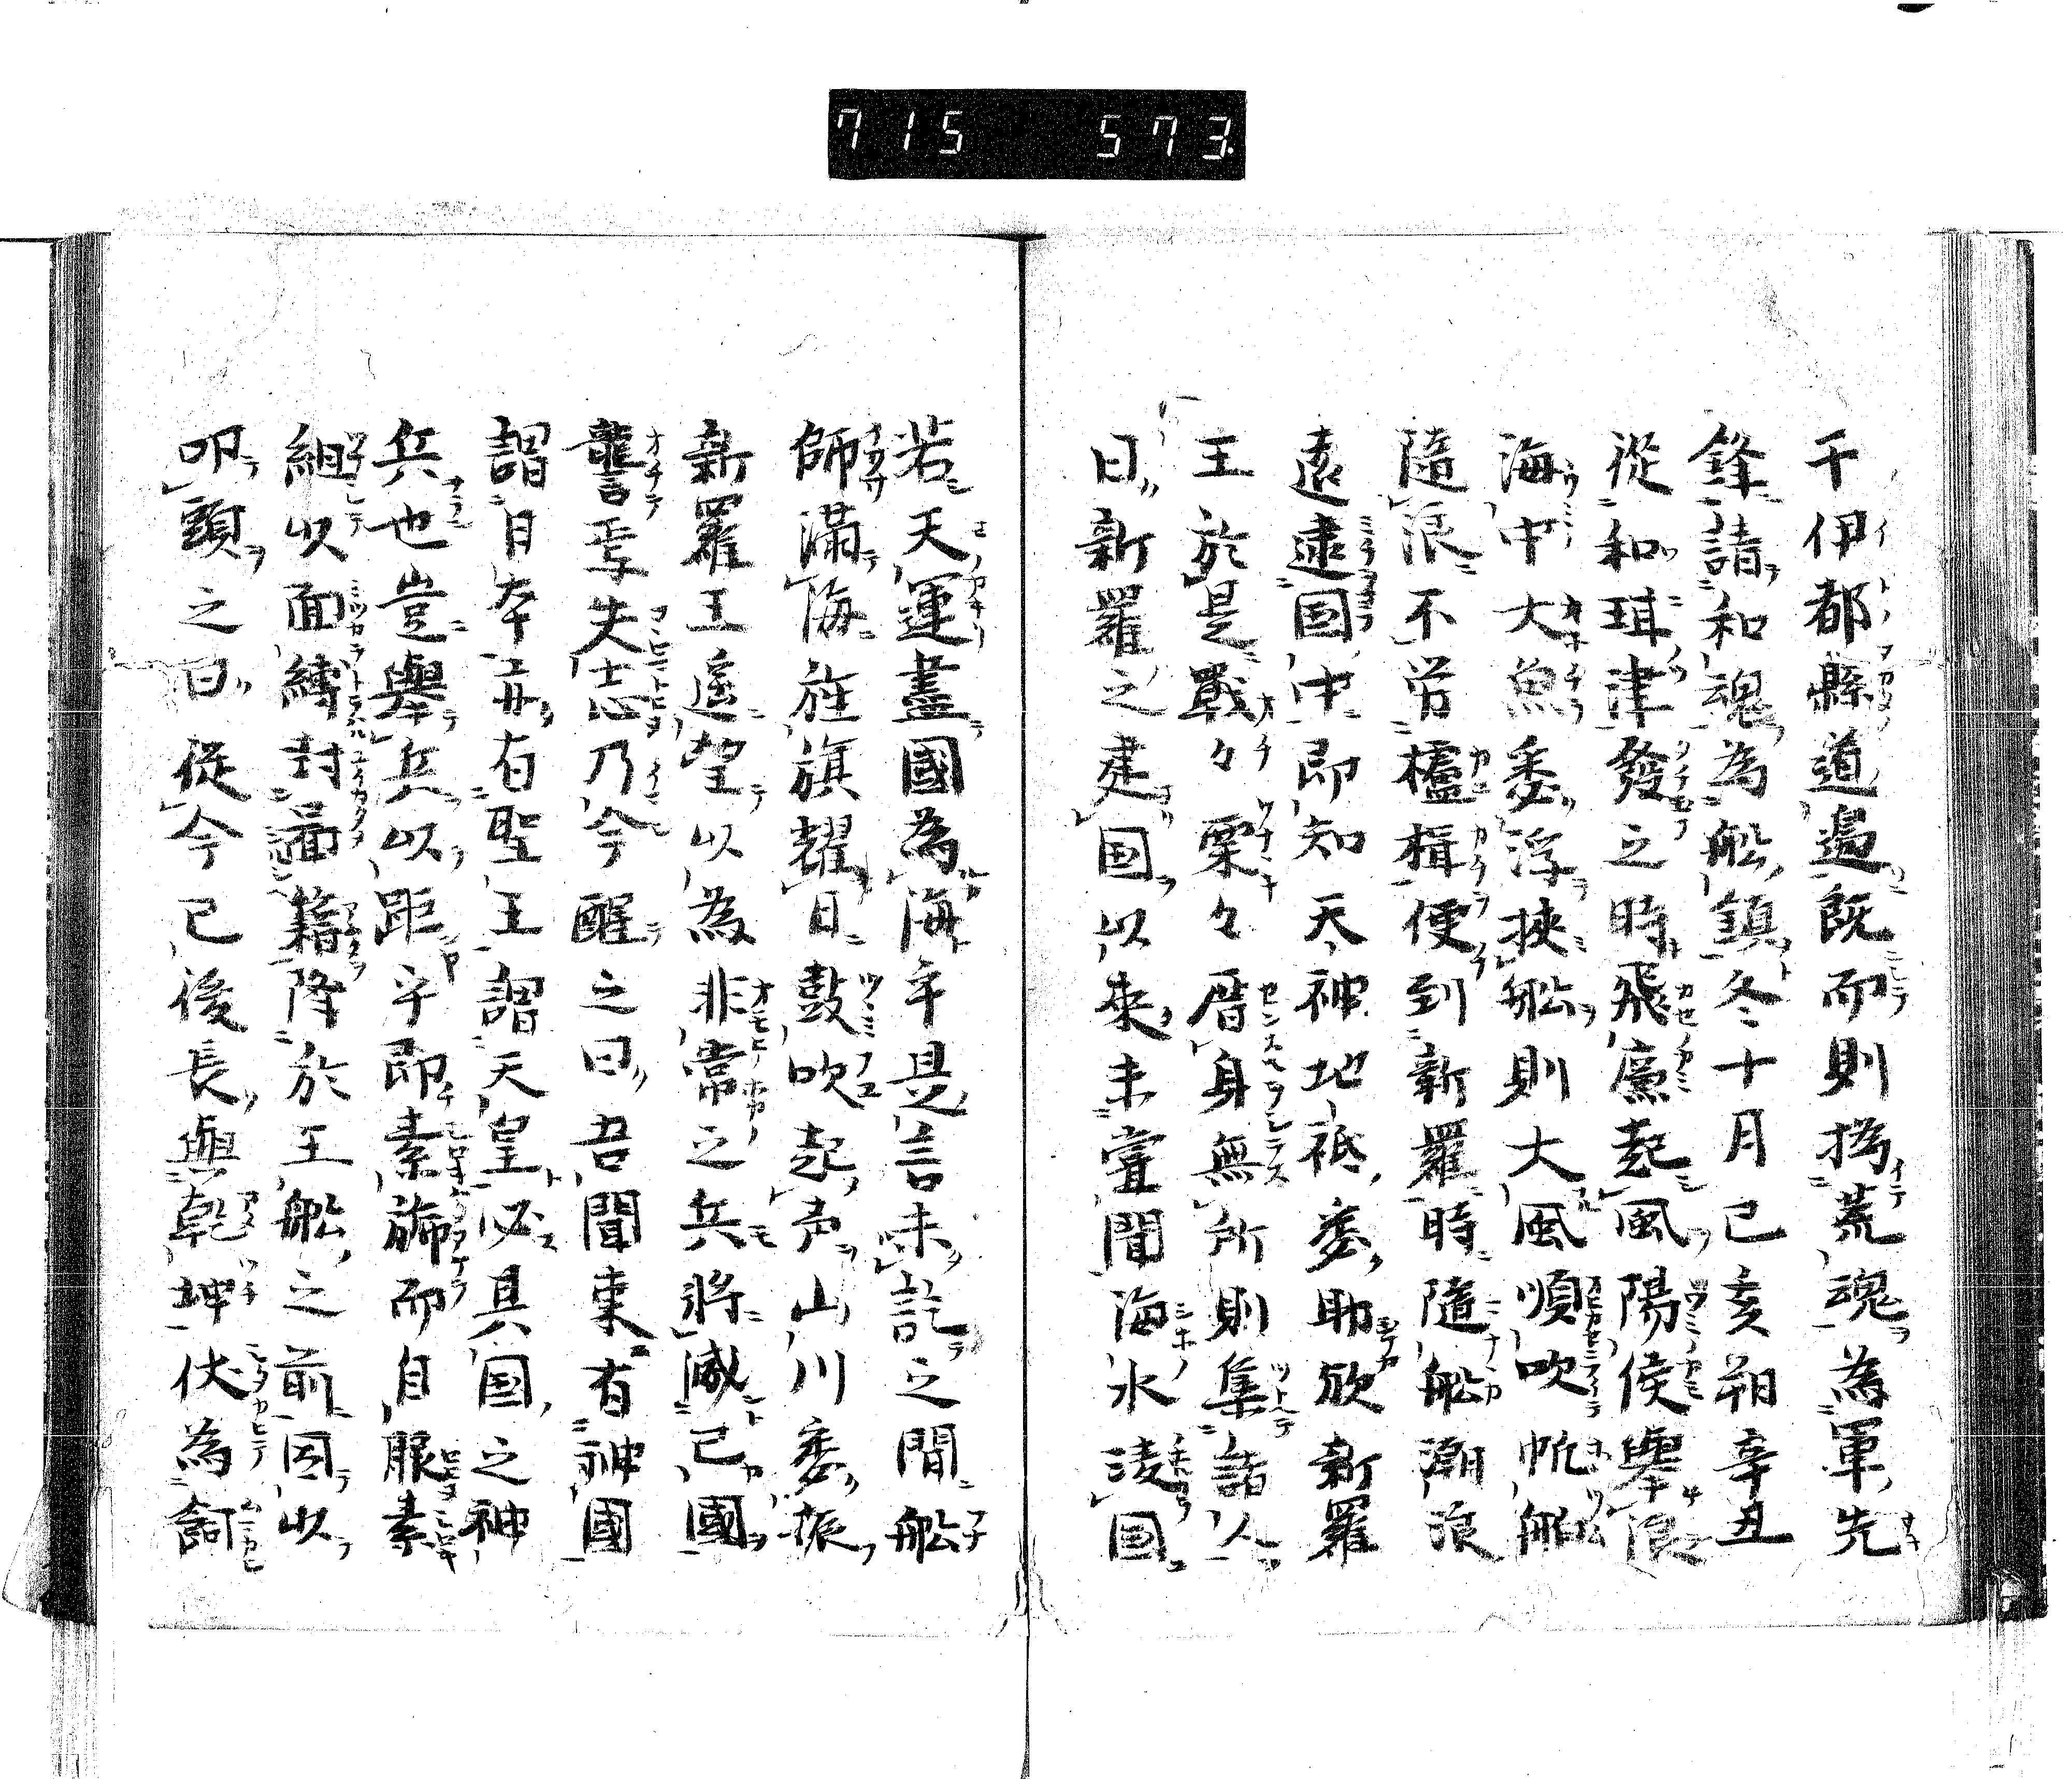 715 573.
千伊都縣道邉既而則撝荒魂為軍先
鋒請和魂為舩鎮冬十月己亥朔辛丑
從和珥津發之時飛廉起風陽侯舉浪
海中大魚悉浮挾舩則大風順吹帆舶
隨浪不労櫨楫便到新羅時隨舩潮浪
遠逮国中即知天神地祗悉助欤新羅
王於是戰々栗々厝身無所則集諸人
曰新羅之建国以来未嘗聞海水凌国
若天運盡國為海乎是言未訖之間舩
師滿海旌旗耀日鼓吹起声山川悉振
新羅王遥望以為非常之兵將滅己國
讋焉失志乃今醒之曰吾聞東有神國
謂日本亦有聖王謂天皇必具国之神
兵也豈舉兵以距乎即素旆而自服素
組以面縛封啚籍降於王舩之前因以
叩頭之曰從今已後長與乾坤伏為飼